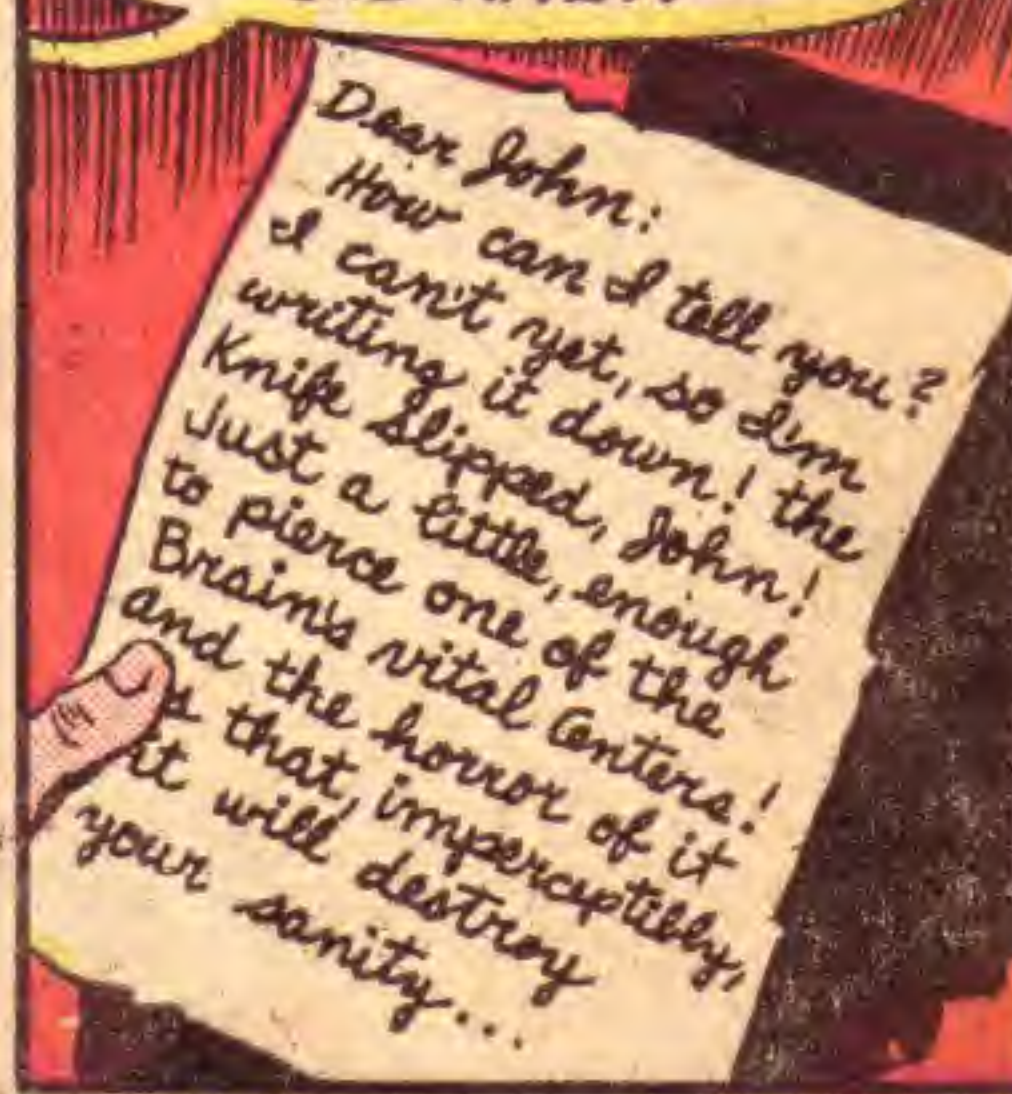 Dear John:
How can I tell you?
I can't yet, so I'm
writing it down! the
Knife Slipped, John!
Just a little, enough
to pierce one of the
Brain's vital Centers!
and the horror of it
that, imperceptibly,
it will destroy
your sanity...